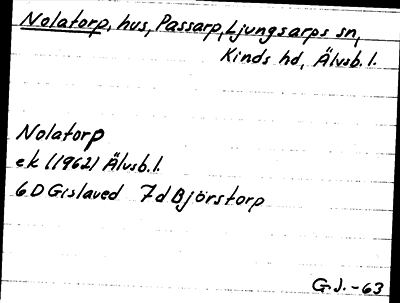 Nolatorp, hus, Passarp, Ljungsarps sn,
Kinds hd, Älvsb. l.
Nolatorp
ek (1962) Älvsb. l.
6D Gislaved 7d Björstorp
G.J. -63